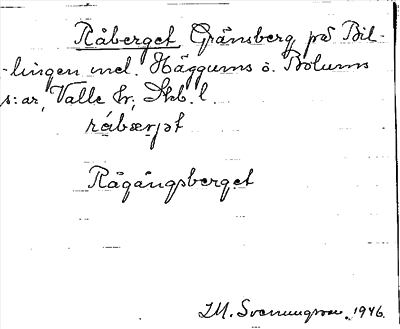 Råberget Gränsberg på Bil-
-lingen mel. Häggums o. Bolums
s:ar, Valle hr, Skb. l.
råbærjət
Rågångsberget
I.M. Svenungsson, 1946.